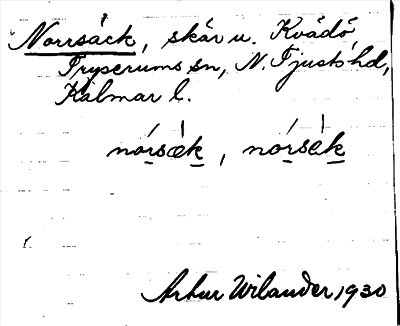 Norrsäck, skär u. Kvädö
Tryserums sn, N. Tjusts hd,
Kalmar l.
nórsæk, nórsék
Arthur Wilander, 1930